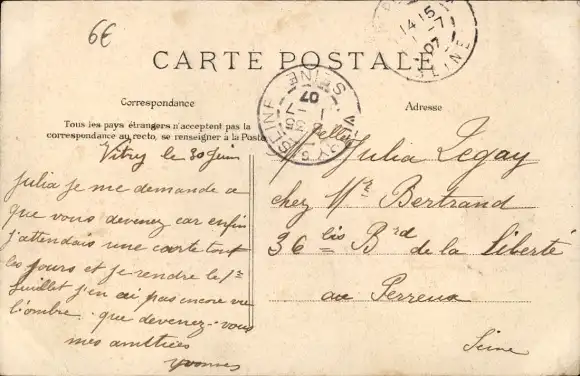 6€
CARTE POSTALE
14 15
-7
07
SEINE
VITRY S SEINE
SEINE
07
Correspondance
Adresse
Tous les pays étrangers n'acceptent pas la
correspondance au recto, se renseigner à la Poste
Vitry le 30 Juin
Julia je me demande a
que vous devenez car enfin
j'attendais une carte tout
les jours et je rendre le 1er
Juillet j'en ai pas encore vu
l'ombre. que devenez-vous
mes amitiées
Yvonne
Melle Julia Legay
chez Mr Bertrand
36 bis Brd de la Liberté
au Perreux
Seine